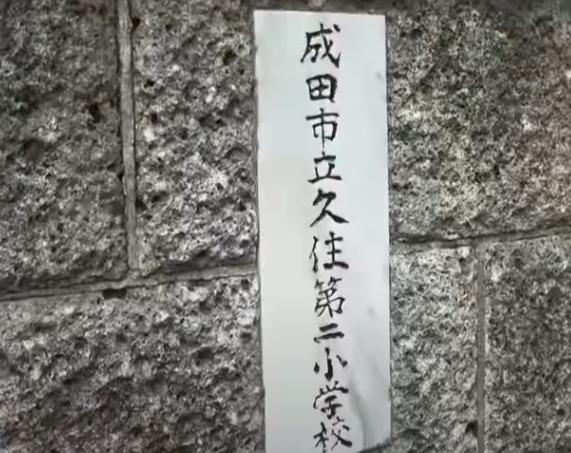 成田市立久住第二小学校